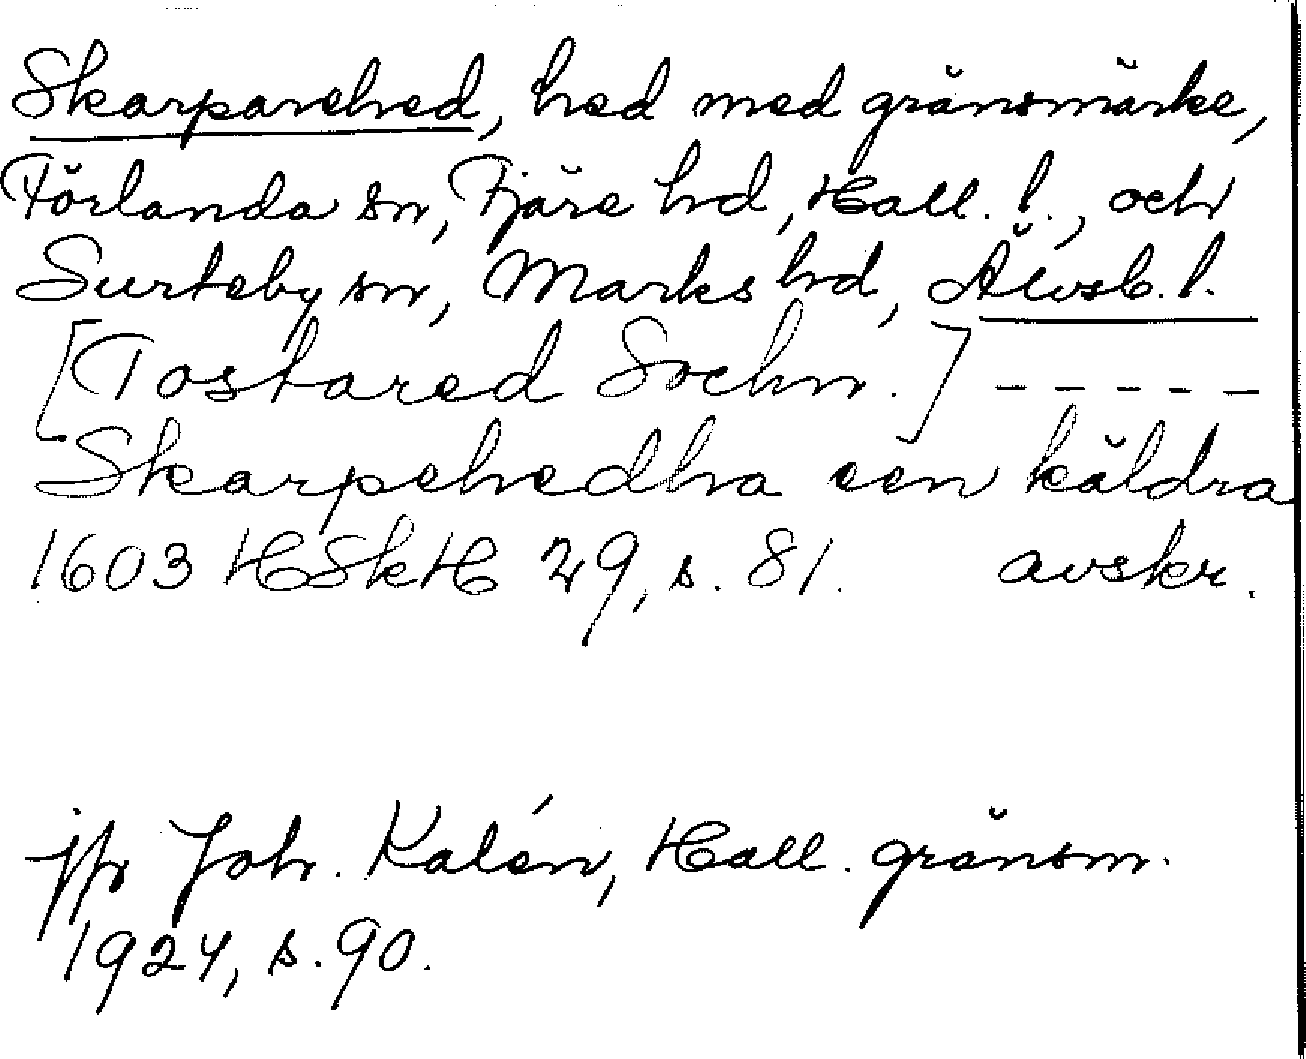 Skarpanehed, hed med gränsmärke,
Förlanda sn, Fjäre hd, Hall. l., och
Surteby sn, Marks hd, Älvsb. l.
[Tostared Sochn.] – – – – –
Skarpehedha een källdra
1603 HSkH 29, s. 81. avskr.
jfr Joh. Kalén, Hall. gränsm.
1924, s. 90.